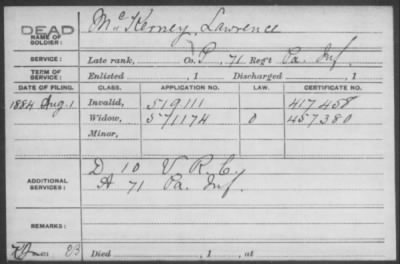 DEAD
NAME OF SOLDIER: McKerney, Lawrence
SERVICE: Late rank, Co. P, 71 Reg't Pa. Inf.
TERM OF SERVICE: Enlisted , 1 Discharged , 1
DATE OF FILING. CLASS. APPLICATION NO. LAW. CERTIFICATE NO.
1884 Aug. 1 Invalid, 519111 417458
Widow, 571174 O 457380
Minor,
ADDITIONAL SERVICES: D 10 V. R. C.
A 71 Pa. Inf.
REMARKS:
Died , 1 , at